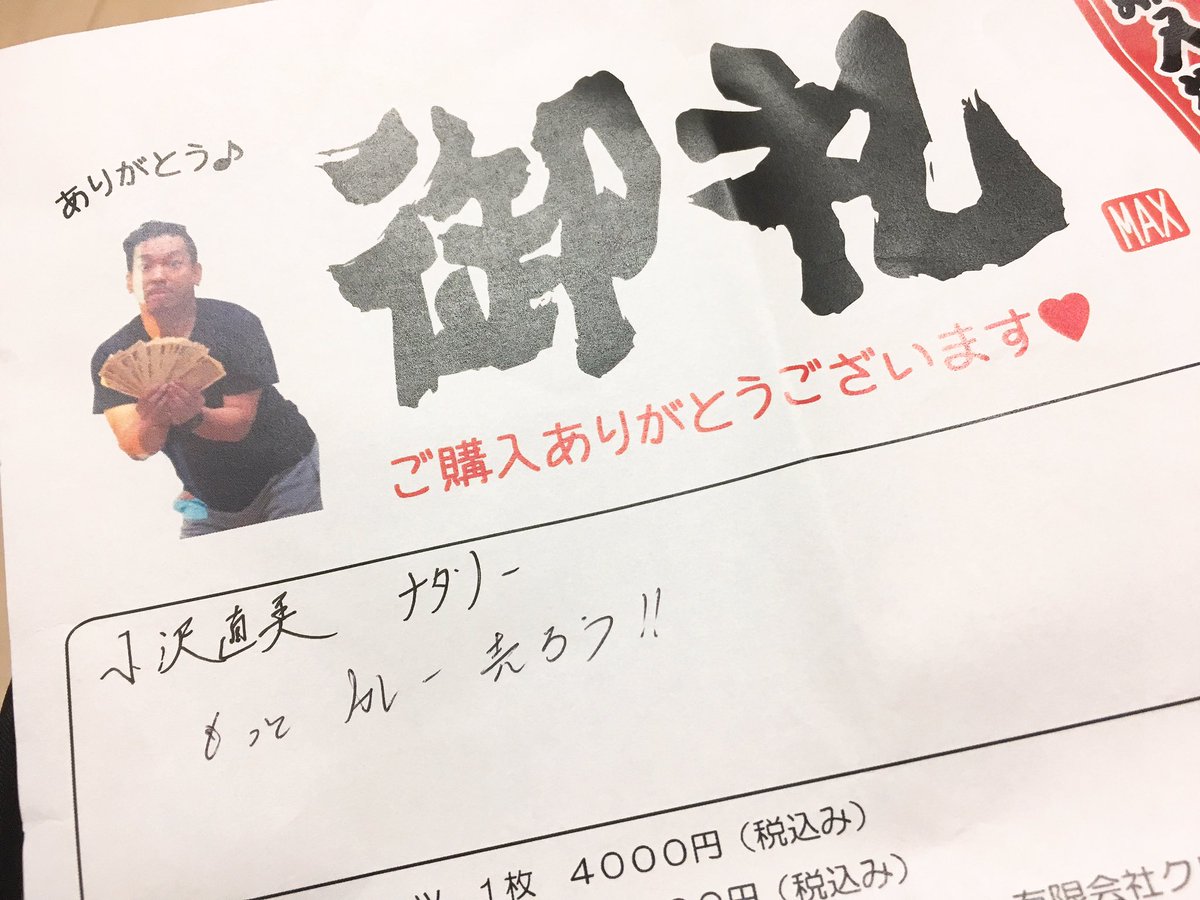 ありがとう♪
御礼
MAX
ご購入ありがとうございます♥
小沢直美 ナタリー
もっと カレー 売ろう!!
1枚 4000円(税込み)
0円(税込み)
有限会社ク